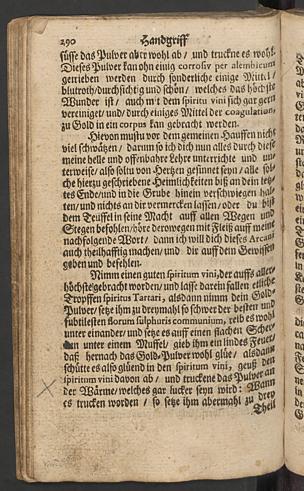 290 Handgriff
süsse das Pulver aber wohl ab / und truckne es wohl.
Dieses Pulver kan ohn einig corrosiv per alembicum
gerieben werden durch sonderliche einige Mittel /
blutroth / durchsichtig und schön / welches das höchste
Wunder ist / auch mit dem spiritu vini sich gar gern
vereiniget / und durch einiges Mittel der coagulation,
zu Gold in ein corpus kan gebracht werden.
Hievon mustu vor dem gemeinen Hauffen nicht
viel schwätzen / darum so ich dich nun alles durch diese
meine helle und offenbahre Lehre unterrichte und un-
terweise / also soltu von Hertzen gesinnet seyn / alle sol-
che hierzu geschriebene Heimlichkeiten biß an dein letz-
tes Ende / und in die Grube hinein verschwiegen hal-
ten / und nichts an dir vermercken lassen / oder du bist
dem Teuffel in seine Macht auff allen Wegen und
Stegen befohlen / höre derowegen mit Fleiß auff meine
nachfolgende Wort / dann ich will dich dieses Arcani
auch theilhafftig machen / und dir auff dein Gewissen
geben und befehlen.
Nimm einen guten spiritum vini, der auffs aller-
höchste gebracht worden / und lasse darein fallen etliche
Tropffen spiritus Tartari, alsdann nimm dein Gold-
Pulver / setze ihm zu dreymahl so schwer der besten und
subtilesten florum sulphuris communium, reib es wohl
unter einander / und setze es auff einen flachen Scher-
unter einem Muffel / gieb ihm ein lindes Feuer /
daß hernach das Gold-Pulver wohl glüe / alsdann
schütte es also glüend in den spiritum vini, geuß den
spiritum vini davon ab / und truckene das Pulver an
der Wärme / welches gar lucker seyn wird: Wann
es trucken worden / so setze ihm abermahl zu drey
Theil